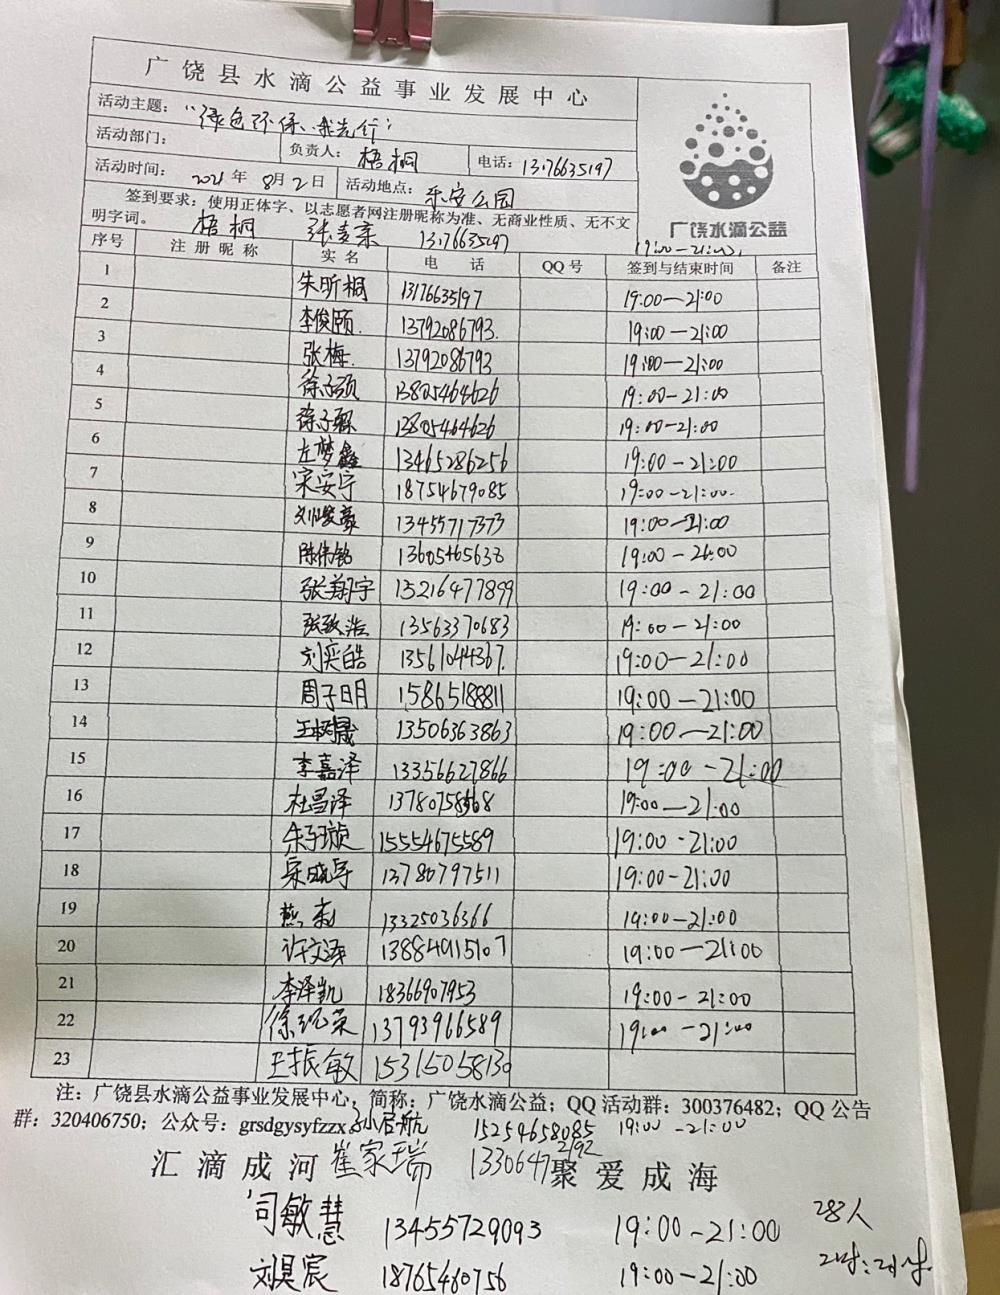 广饶县水滴公益事业发展中心
活动主题：“绿色环保、我先行”
活动部门： 负责人：梧桐 电话：13176635197
活动时间：2021年8月2日 活动地点：乐安公园
广饶水滴公益
签到要求：使用正体字、以志愿者网注册昵称为准、无商业性质、无不文
明字词。 梧桐 13176635197 19:00-21:00
序号 注册昵称 实名 电话 QQ号 签到与结束时间 备注
1 朱昕桐 13176635197 19:00-21:00
2 李俊颐 13792086793 19:00-21:00
3 张梅 13792086793 19:00-21:00
4 徐子颂 13805464626 19:00-21:00
5 徐子 13805464626 19:00-21:00
6 左梦鑫 13465286256 19:00-21:00
7 宋安宁 18754679085 19:00-21:00
8 刘峻豪 13455717373 19:00-21:00
9 陈伟铭 13605465638 19:00-21:00
10 张翔宇 15216477899 19:00-21:00
11 张致浩 13563370683 19:00-21:00
12 刘奕皓 13561044367 19:00-21:00
13 周子明 15865188811 19:00-21:00
14 王树晟 13506363863 19:00-21:00
15 李嘉泽 13356627866 19:00-21:00
16 杜昌泽 13780758568 19:00-21:00
17 朱珍璇 15554675589 19:00-21:00
18 宋晓宇 13780797511 19:00-21:00
19 燕 13325036366 19:00-21:00
20 许文泽 13884915107 19:00-21:00
21 李泽凯 18366907953 19:00-21:00
22 徐荣 13793966589 19:00-21:00
23 王振敏 15315058130
注：广饶县水滴公益事业发展中心，简称：广饶水滴公益；QQ 活动群：300376482；QQ 公告
群：320406750；公众号：grsdgysyfzzx 孙启航 15254658085 19:00-21:00
汇滴成河 崔家瑞 13306472192 聚爱成海
司敏慧 13455729093 19:00-21:00 28人
刘昊宸 18765460756 19:00-21:00